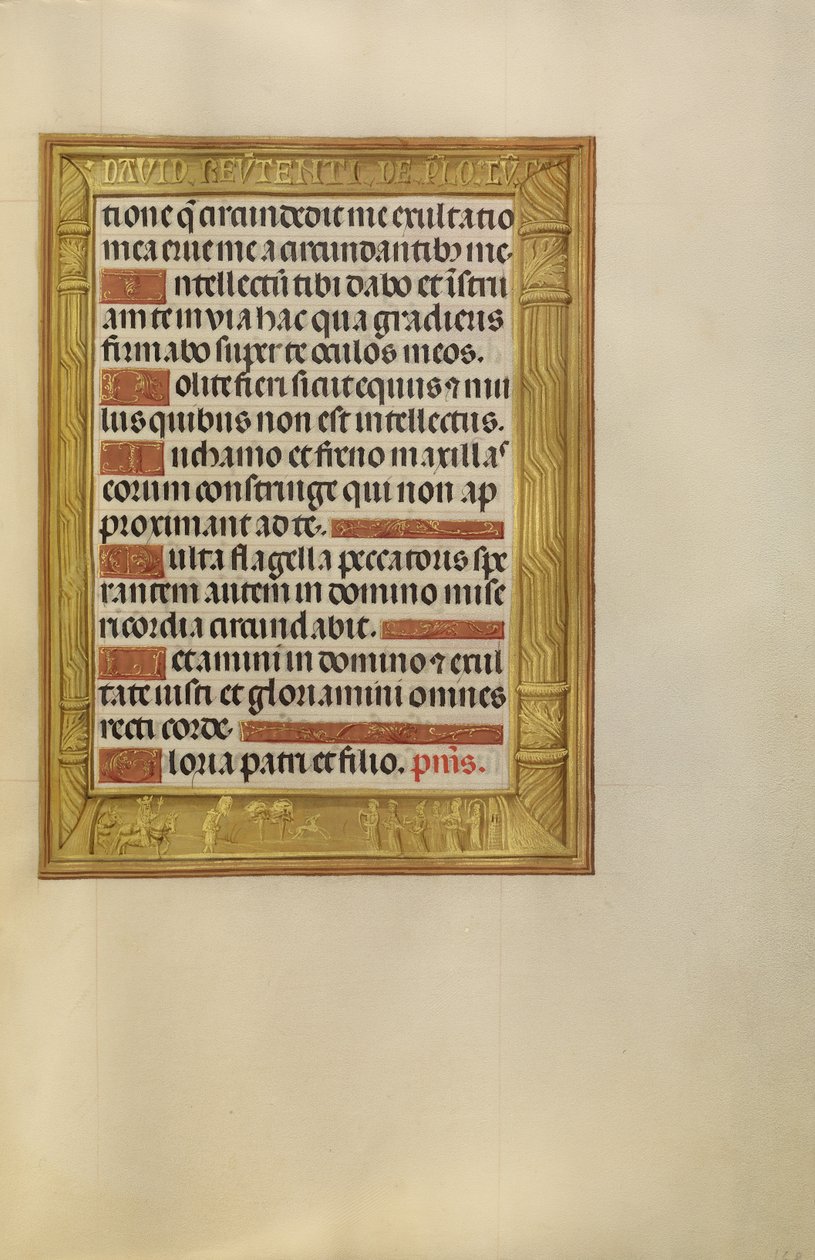 DAVID REV̄TENTI DE
tione q̄ circundedit me exultatio
mea erue me a circundantibꝫ me.
Intellectū tibi dabo et īstru
am te in via hac qua gradieris
firmabo super te oculos meos.
Nolite fieri sicut equus ⁊ mu
lus quibus non est intellectus.
In chamo et freno maxillas
eorum constringe qui non ap
proximant ad te.
Multa flagella peccatoris spe
rantem autem in domino mise
ricordia circundabit.
Letamini in domino ⁊ exul
tate iusti et gloriamini omnes
recti corde.
Gloria patri et filio. pm̄s.